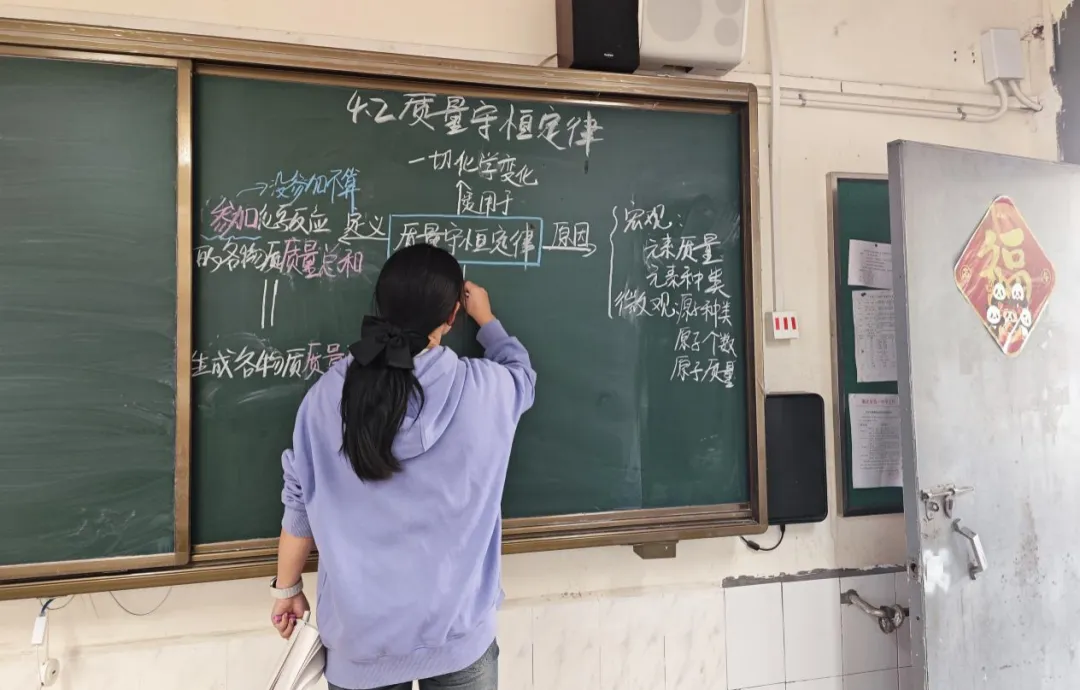 4.2 质量守恒定律
一切化学变化
适用于
→没参加不算
参加化学反应
定义
质量守恒定律
原因
的各物质质量总和
生成各物质质量
宏观:
元素质量
元素种类
微观:原子种类
原子个数
原子质量
福